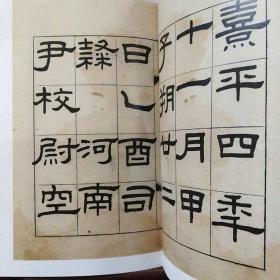 熹平四年
十一月甲
子朔廿二
日乙酉司
隸河南
尹校尉空